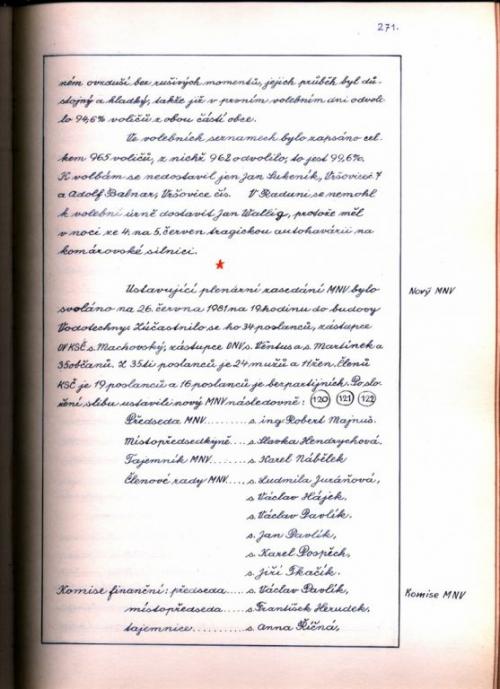 271.
ném ovzduší bez rušivých momentů, jejich průběh byl dů-
stojný a hladký, takže již v prvním volebním dni odvoli-
lo 94,6% voličů z obou částí obce.
Ve volebních seznamech bylo zapsáno cel-
kem 965 voličů, z nichž 962 odvolilo, to jest 99,6%.
K volbám se nedostavil jen Jan Lukeník, Vršovice č 7
a Adolf Balnar, Vršovice čís. V Raduni se nemohl
k volební urně dostavit Jan Wallig, protože měl
v noci ze 4. na 5. červen tragickou autohavárii na
komárovské silnici.
Ustavující plenární zasedání MNV bylo
Nový MNV
svoláno na 26. června 1981 na 19 hodinu do budovy
Vodotechny. Zúčastnilo se ho 34 poslanců, zástupce
OV KSČ s. Machovský, zástupce ONV s. Ventus a s. Martínek a
35 občanů. Z 35ti poslanců je 24 mužů a 11 žen. Členů
KSČ je 19 poslanců a 16 poslanců je bezpartijních. Po slo-
žení slibu ustavili nový MNV následovně: 120 121 122
Předseda MNV ........ s. ing Robert Majnuš.
Místopředsedkyně .... s. Slavka Hendrychová.
Tajemník MNV ....... s. Karel Nábělek
Členové rady MNV..... s. Ludmila Juráňová,
s. Václav Hájek,
s. Václav Pavlík.
s. Jan Pavlík,
s. Karel Pospěch,
s. Jiří Tkačík.
Komise finanční: předseda ..... s. Václav Pavlík,
Komise MNV
místopředseda ..... s. František Herudek,
tajemnice .......... s. Anna Říčná,